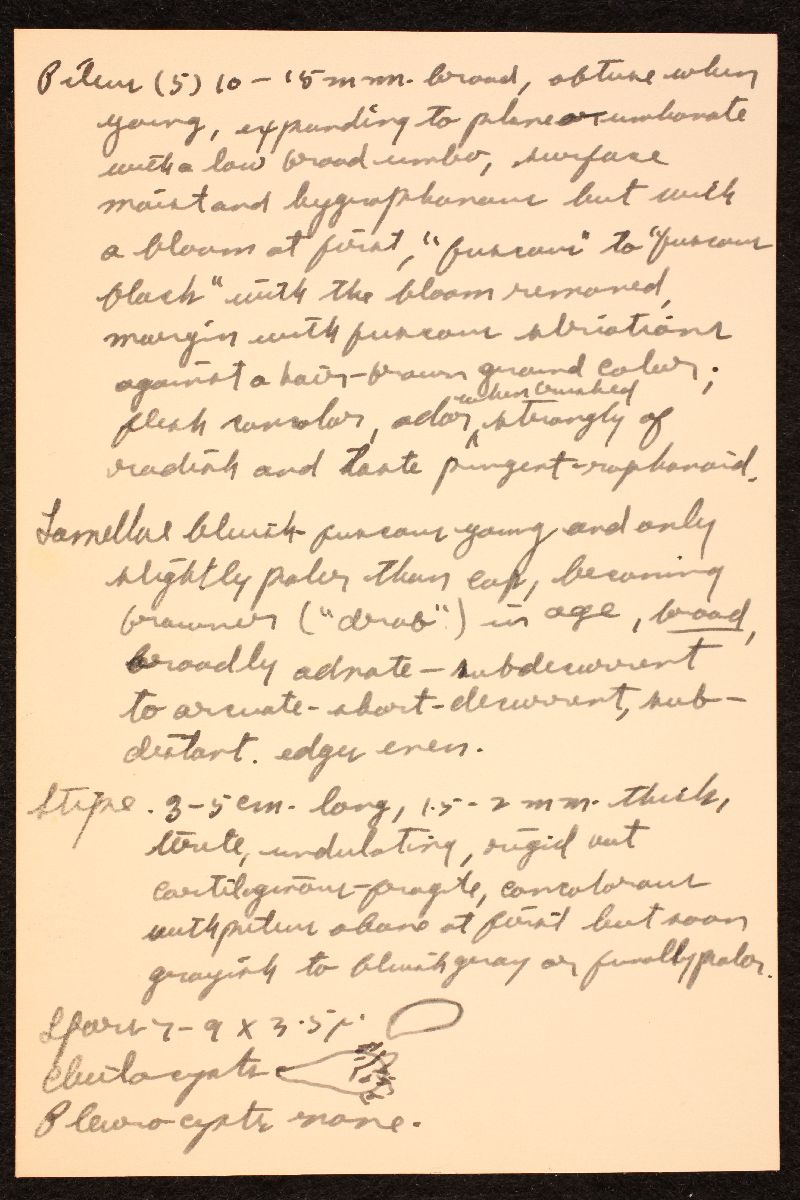 Pileus (5) 10 – 15 mm. broad, obtuse when
young, expanding to plane or umbonate
with a low broad umbo, surface
moist and hygrophanous but with
a bloom at first, "fuscous" to "fuscous
black" with the bloom removed,
margin with fuscous striations
against a hair-brown ground color;
flesh concolor, odor when crushed strongly of
radish and taste pungent-raphanoid.
Lamellae bluish-fuscous young and only
slightly paler than cap, becoming
browner ("drab") in age, broad,
broadly adnate – subdecurrent
to arcuate-short-decurrent, sub-
distant. edges even.
Stipe. 3-5 cm. long, 1.5-2 mm. thick,
terete, undulating, rigid but
cartilaginous-fragile, concolorous
with pileus above at first but soon
grayish to bluish gray or finally paler.
Spores 7-9 x 3.5 μ.
Cheilocysts
Pleurocysts none.